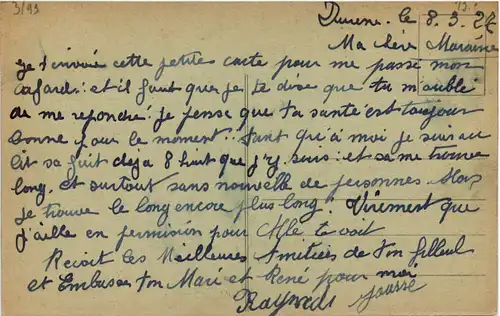 3/93
Durene. le 8.3.24
Ma chère Maraine
Je t'envoie cette petites carte pour me passé mon
cafard: et il faut que je te dise que tu m'oublie
de me repondre: je pense que ta santé est toujour
bonne pour le moment. tant qu'à moi je suis au
lit sa fait deja 8 huit que j'y suis: et sa me trouve
long. et surtout sans nouvelle de personnes Alors
je trouve le long encore plus long. Virement que
j'aille en permission pour Alle te voit
Recoit les Meilleures Amitiés de ton filleul
et Embasse ton Mari et René pour moi
Raymond